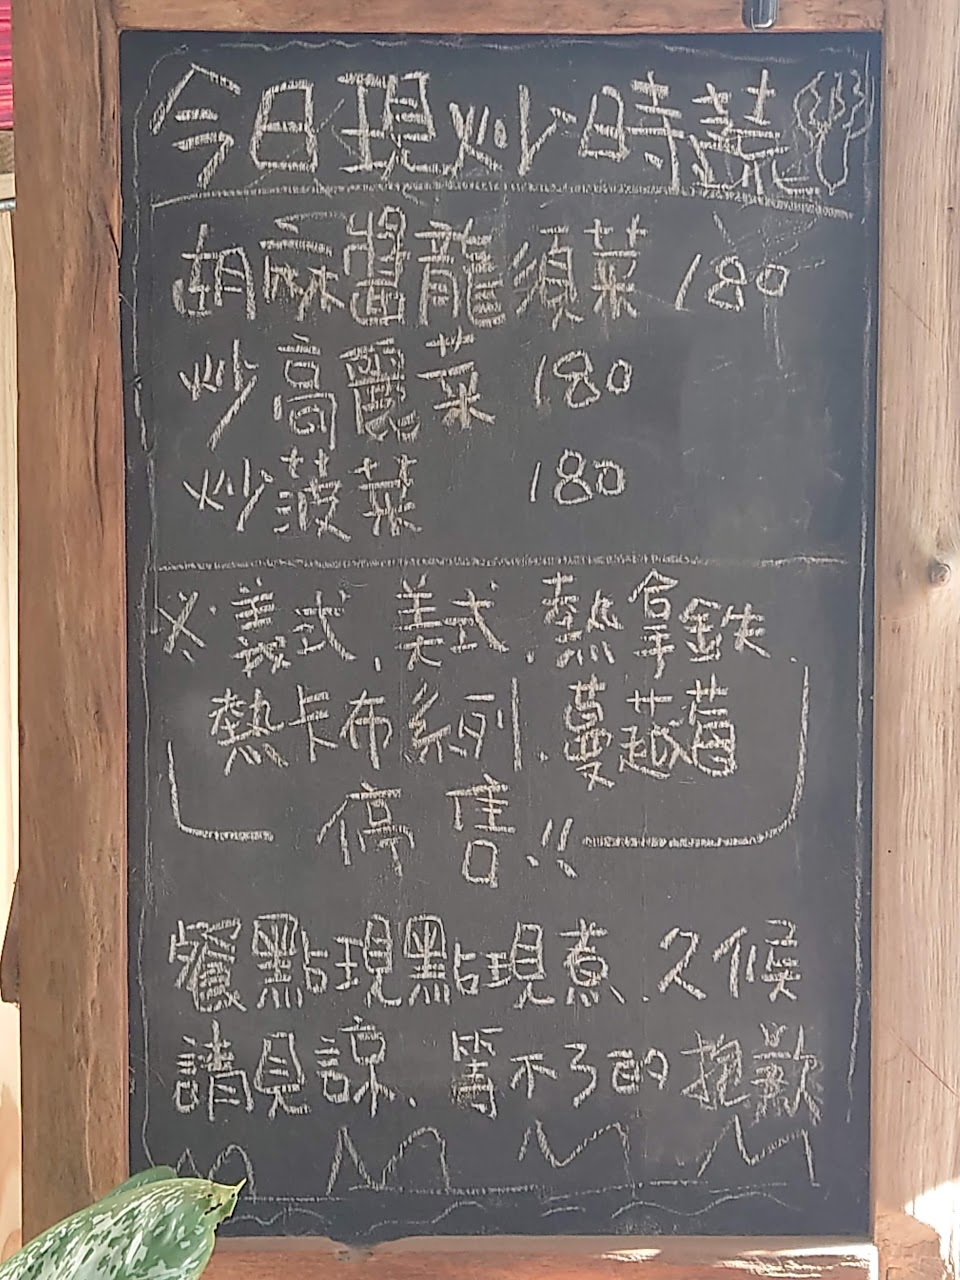 今日現炒時蔬
胡麻醬龍須菜 180
炒高麗菜 180
炒菠菜 180
※義式、美式、熱拿鉄、
熱卡布系列、蔓越莓
停售!!
餐點現點現煮、久候
請見諒、等不了的抱歉